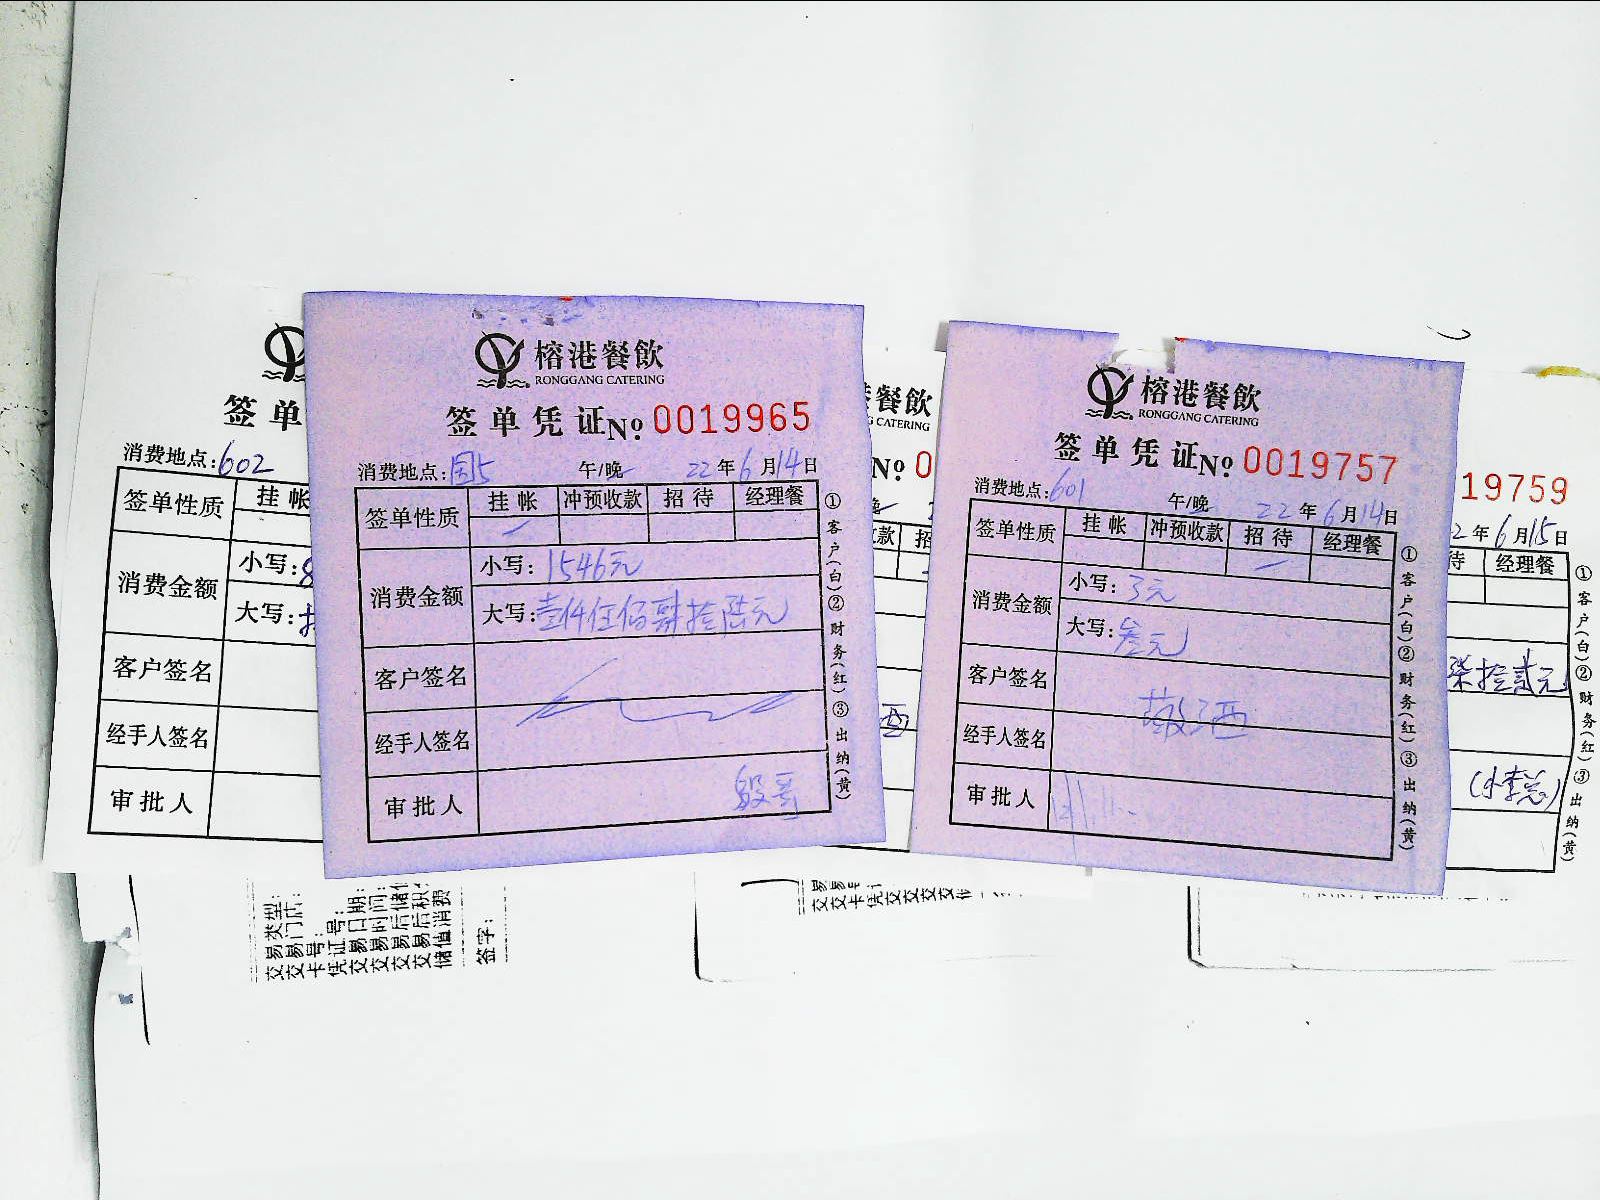 签单
消费地点:602
签单性质
挂帐
消费金额
小写:8
大写:
客户签名
经手人签名
审批人
榕港餐飲
RONGGANG CATERING
签单凭证№ 0019965
消费地点:固5 午/晚 22年6月14日
签单性质 挂帐 冲预收款 招待 经理餐
消费金额
小写:1546元
大写:壹仟伍佰肆拾陆元
客户签名
经手人签名
审批人
①客户(白)②财务(红)③出纳(黄)
餐飲
CATERING
№ 0
晚
款 招
榕港餐飲
RONGGANG CATERING
签单凭证№ 0019757
消费地点:601 午/晚 22年6月14日
签单性质 挂帐 冲预收款 招待 经理餐
消费金额
小写:3元
大写:叁元
客户签名
经手人签名
审批人
①客户(白)②财务(红)③出纳(黄)
19759
2年6月15日
待 经理餐
柒拾贰元
(小李总)
①客户(白)②财务(红)③出纳(黄)
交易类型:
交易门店:
卡号:
凭证号:
交易日期:
交易时间:
交易后储值
交易后积分
储值消费
签字: